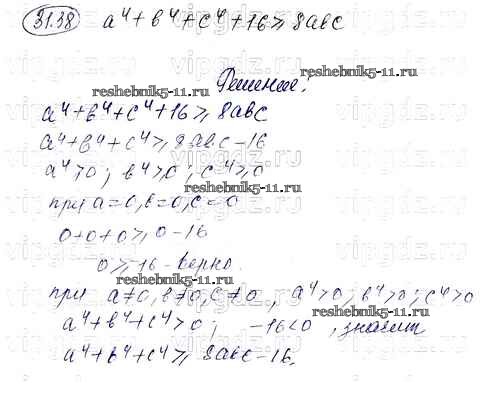 31.38 a⁴+b⁴+c⁴+16≥8abc
reshebnik5-11.ru
Решение:
a⁴+b⁴+c⁴+16≥8abc
reshebnik5-11.ru
a⁴+b⁴+c⁴≥8abc-16
a⁴≥0; b⁴≥0; c⁴≥0
reshebnik5-11.ru
при a=0, b=0, c=0
0+0+0≥0-16
0≥-16-верно.
reshebnik5-11.ru
при a≠0, b≠0, c≠0, a⁴>0; b⁴>0; c⁴>0
reshebnik5-11.ru
a⁴+b⁴+c⁴>0; -16<0, значит
a⁴+b⁴+c⁴≥8abc-16.
reshebnik5-11.ru